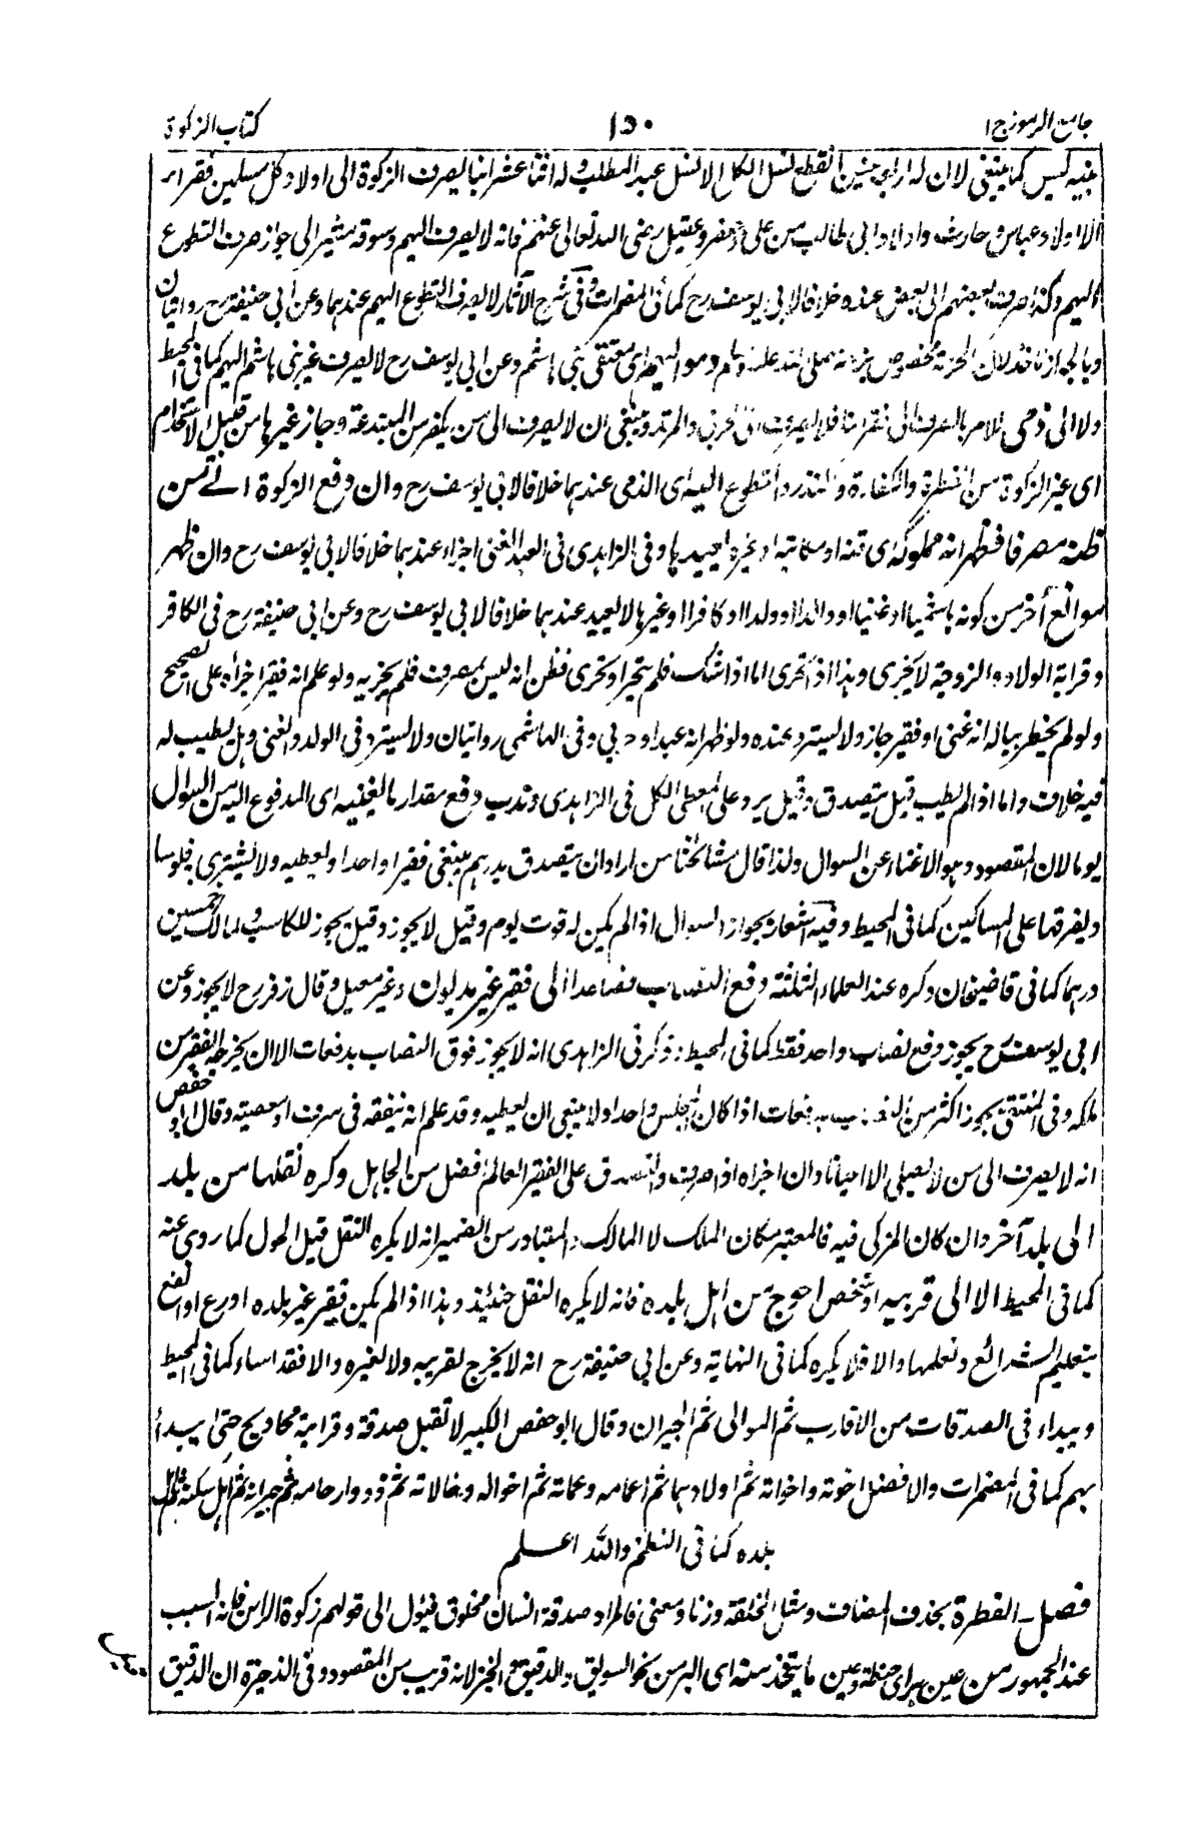 جامع الرموز ج ١
١٥٠
كتاب الزكوة
بنيه ليس كما ينبغي لان له اربع بنين انقطع نسل الكل الا نسل عبد المطلب وله اثنا عشر ابنا يصرف الزكوة الى اولاد كل مسلمين فقراء
الا اولاد عباس وحارث واولاد ابى طالب من على وجعفر وعقيل رضى الله تعالى عنهم فانه لا يصرف اليهم وسوقه مشير الى جواز صرف التطوع
اليهم وكذا صرف بعضهم الى بعض عنده خلافا لابى يوسف رح كما فى المضمرات وفى شرح الآثار لا يصرف التطوع اليهم عندهما وعن ابى حنيفة رح روايتان
وبالجواز ناخذ لان الحرمة مخصوص بزمانه صلى الله عليه وسلم ومواليهم اى معتقى بنى هاشم وعن ابى يوسف رح لا يصرف غير بنى هاشم اليهم كما فى المحيط
ولا الى ذمى للامر بالصرف الى فقرائنا فلا يصرف الى الحربى والمرتد وينبغى ان لا يصرف الى من يكفر من المبتدعة وجاز غيرها من قبيل الاستخدام
اى غير الزكوة من الفطرة والكفارة والنذر والتطوع اليه اى الذمى عندهما خلافا لابى يوسف رح وان دفع الزكوة الى من
ظنه مصرفا فظهر انه مملوكه اى قنه او مكاتبه او غيره يعيدها وفى الزاهدى فى العبد الغنى اجزاء عندهما خلافا لابى يوسف رح وان ظهر
موانع أخر من كونه هاشميا او غنيا او والدا او ولدا او كافرا او غيرها لا يعيد عندهما خلافا لابى يوسف رح وعن ابى حنيفة رح فى الكافر
وقرابة الولاد والزوجية لا يجزى وهذا اذا تحرى اما اذا شك فلم يتحر او تحرى فظن انه ليس بمصرف فلم يجزيه ولو علم انه فقير اجزأه على الصحيح
ولو لم يخطر بباله انه غنى او فقير جاز ولا يسترد عنده ولو ظهر انه عبد او حربى وفى الهاشمى روايتان ولا يسترد فى الولد والغنى وهل يطيب له
فيه خلاف واما اذا لم يطب قيل يتصدق وقيل يرد على المعطى الكل فى الزاهدى وندب دفع مقدار ما يغنيه اى المدفوع اليه من السوال
يوما لان المقصود هو الاغناء عن السوال ولذا قال مشائخنا من اراد ان يتصدق بدرهم ينبغى فقيرا واحدا ويعطيه ولا يشترى فلوسا
ويفرقها على المساكين كما فى المحيط وفيه اشعار بجواز السوال اذا لم يكن له قوت يوم وقيل لا يجوز وقيل يجوز للكاسب ولمالك خمسين
درهما كما فى قاضيخان وكره عند العلماء الثلثة دفع النصاب فصاعدا الى فقير غير مديون وغير معيل وقال زفر رح لا يجوز وعن
ابى يوسف رح يجوز دفع نصاب واحد فقط كما فى المحيط وذكر فى الزاهدى انه لا يجوز فوق النصاب بدفعات الا ان يخرجه الفقير من
ملكه وفى المنتقى يجوز اكثر من النصاب بدفعات اذا كان المجلس واحدا ولا ينبغى ان يعطيه وقد علم انه ينفقه فى سرف او معصية وقال ابو حفص
انه لا يصرف الى من لا يصلى الا احيانا وان اجزاه اذا صرف والتصدق على الفقير العالم افضل من الجاهل وكره نقلها من بلد
الى بلد آخر وان كان المزكى فيه فالمعتبر مكان الملك لا المالك والمتبادر من الضمير انه لا يكره النقل قبل الحول كما روى عنه
كما فى المحيط الا الى قريبه او شخص احوج من اهل بلده فانه لا يكره النقل حينئذ وهذا اذا لم يكن فقير غير بلده اورع او انفع
بتعليم الشرائع وتعلمها والا فلا يكره كما فى النهاية وعن ابى حنيفة رح انه لا يخرج لقريبه ولا لغيره والا فقد اساء كما فى المحيط
ويبداء فى الصدقات من الاقارب ثم الموالى ثم الجيران وقال ابو حفص الكبير لا تقبل صدقة وقرابة محاويج حتى يبدأ
بهم كما فى المضمرات والافضل اخوته واخواته ثم اولادهما ثم اعمامه وعماته ثم اخواله وخالاته ثم ذووارحامه ثم جيرانه ثم اهل سكنه ثم اهل
بلده كما فى النظم والله اعلم
فصل الفطرة بحذف المضاف ومثل الخلقة وزنا ومعنى فالمراد صدقة انسان مخلوق فيؤل الى قولهم زكوة الراس فانه السبب
عند الجمهور من عين بر اى حنطة وعين ما يتخذ منه اى البر من نحو السويق والدقيق والخبز لانه قريب من المقصود وفى الذخيرة ان الدقيق